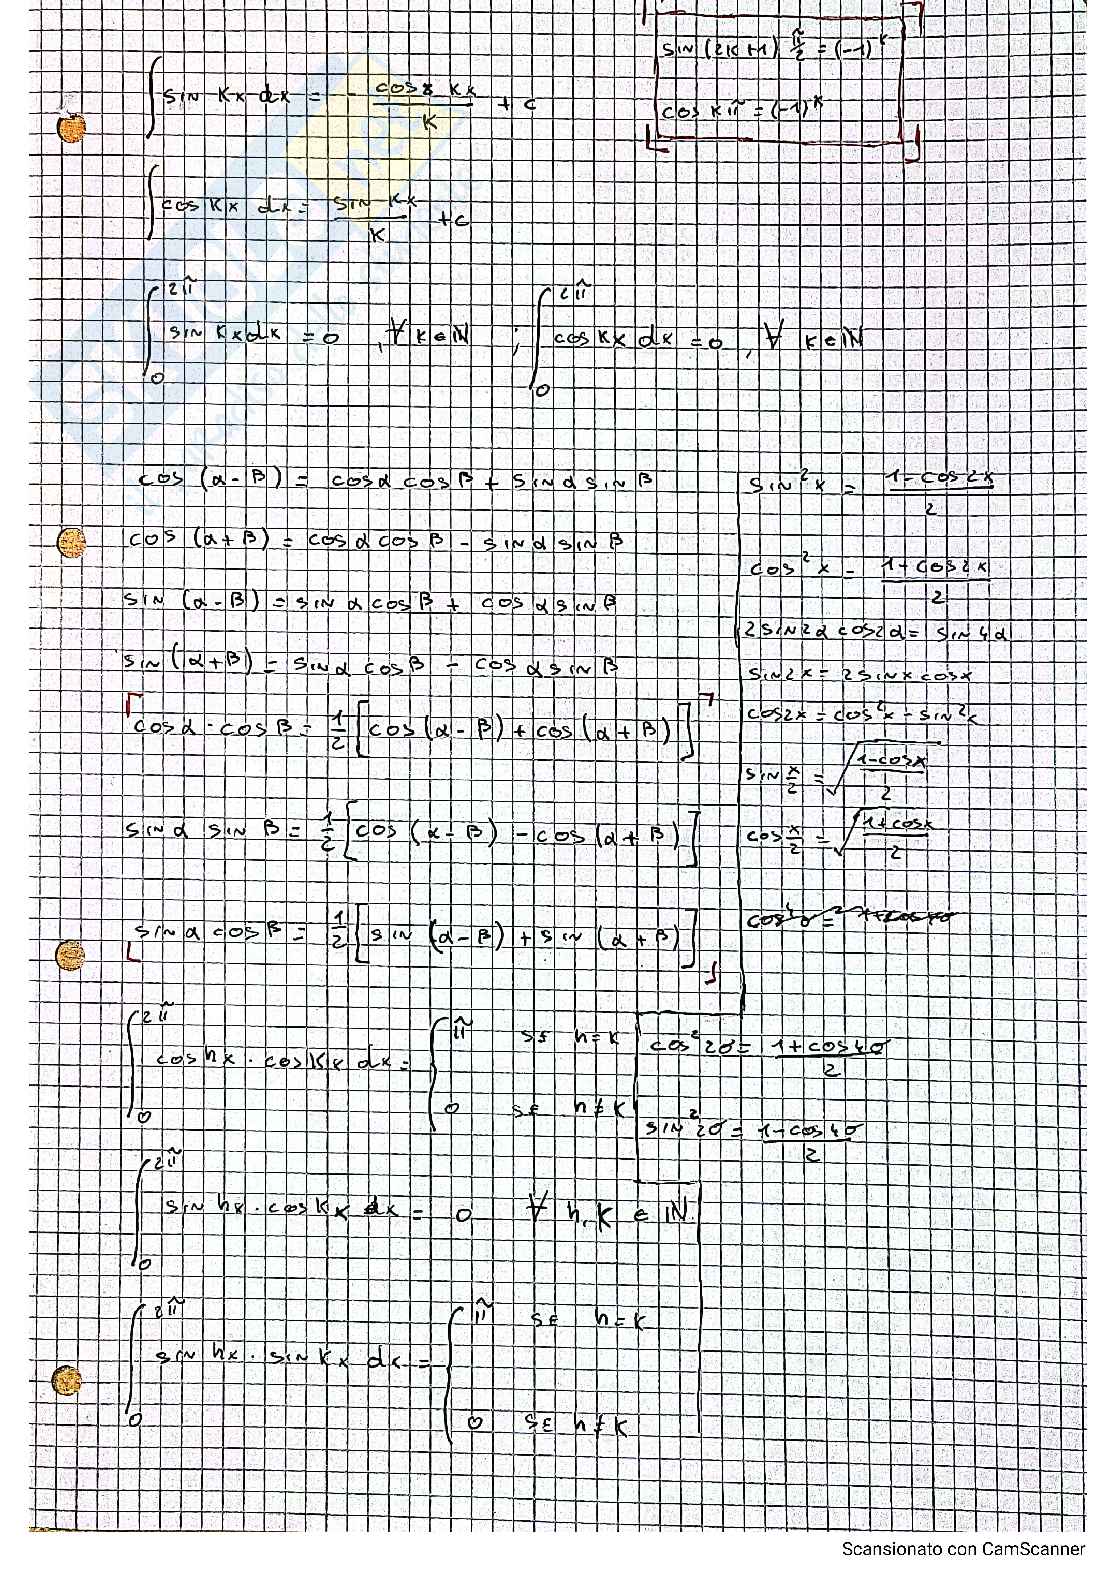 sin (2k+1) π/2 = (-1)^k
∫ sin kx dx = - cos kx / k + c
cos kπ = (-1)^k
∫ cos kx dx = sin kx / k + c
∫_0^{2π} sin kx dx = 0 , ∀ k ∈ ℕ ; ∫_0^{2π} cos kx dx = 0 , ∀ k ∈ ℕ
cos (α-β) = cos α cos β + sin α sin β
cos (α+β) = cos α cos β - sin α sin β
sin (α-β) = sin α cos β + cos α sin β
sin (α+β) = sin α cos β - cos α sin β
cos α · cos β = 1/2 [cos (α-β) + cos (α+β)]
sin α sin β = 1/2 [cos (α-β) - cos (α+β)]
sin α cos β = 1/2 [sin (α-β) + sin (α+β)]
sin² x = (1-cos 2x)/2
cos² x = (1+cos 2x)/2
2 sin 2α cos 2α = sin 4α
sin 2x = 2 sin x cos x
cos 2x = cos² x - sin² x
sin x/2 = √((1-cos x)/2)
cos x/2 = √((1+cos x)/2)
∫_0^{2π} cos hx · cos kx dx = { π se h = k
0 se h ≠ k
cos² 2σ = (1+cos 4σ)/2
sin² 2σ = (1-cos 4σ)/2
∫_0^{2π} sin hx · cos kx dx = 0 ∀ h, k ∈ ℕ.
∫_0^{2π} sin hx · sin kx dx = { π se h = k
0 se h ≠ k
Scansionato con CamScanner